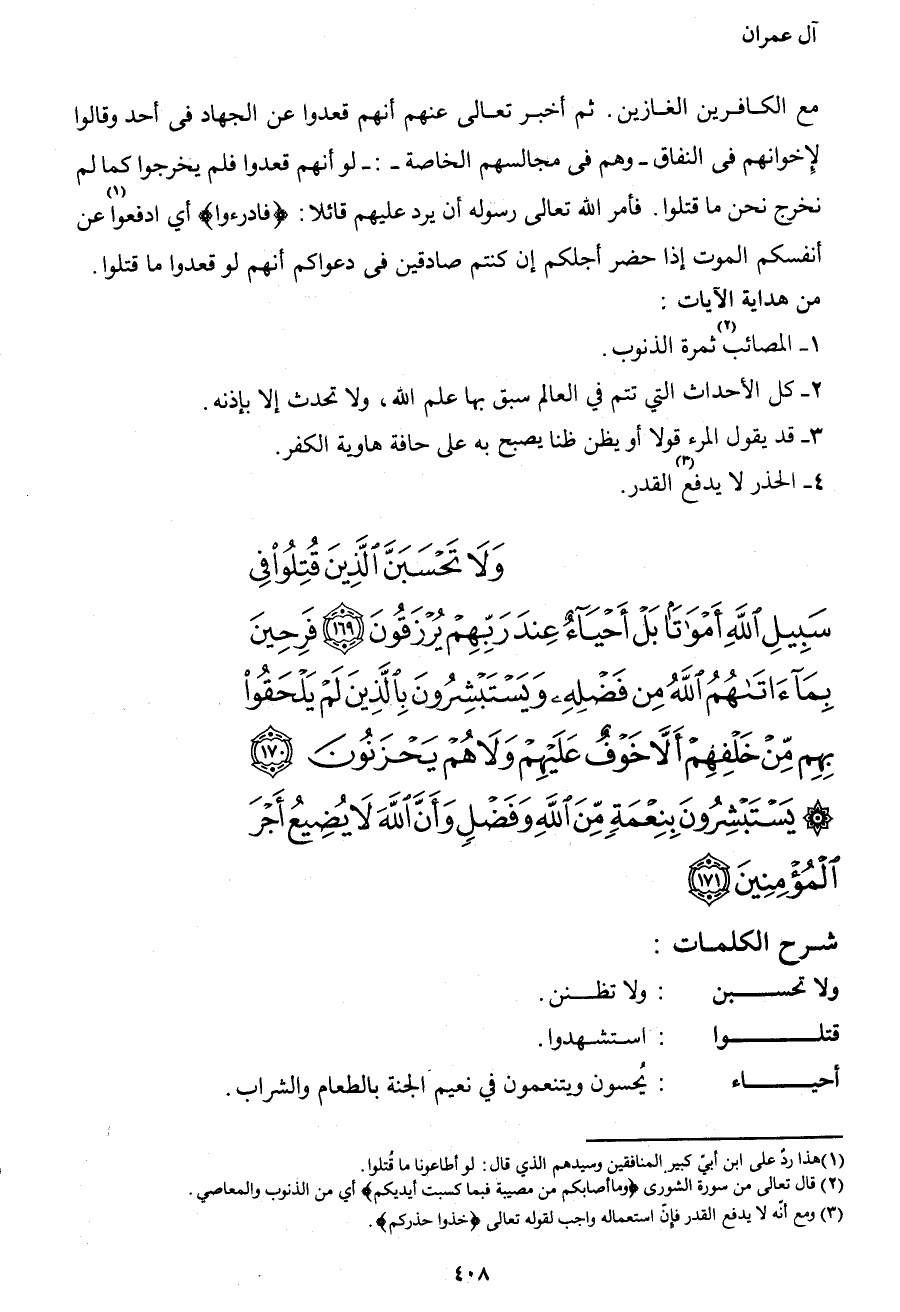 آل عمران
مع الكافرين الغازين. ثم أخبر تعالى عنهم أنهم قعدوا عن الجهاد فى أحد وقالوا
لإخوانهم فى النفاق ـ وهم فى مجالسهم الخاصة ـ :ـ لو أنهم قعدوا فلم يخرجوا كما لم
نخرج نحن ما قتلوا. فأمر الله تعالى رسوله أن يرد عليهم قائلا: ﴿فادرءوا﴾ أي ادفعوا(١) عن
أنفسكم الموت إذا حضر أجلكم إن كنتم صادقين فى دعواكم أنهم لو قعدوا ما قتلوا.
من هداية الآيات :
١ـ المصائب(٢) ثمرة الذنوب.
٢ـ كل الأحداث التي تتم في العالم سبق بها علم الله، ولا تحدث إلا بإذنه.
٣ـ قد يقول المرء قولا أو يظن ظنا يصبح به على حافة هاوية الكفر.
٤ـ الحذر لا يدفع(٣) القدر.
وَلَا تَحْسَبَنَّ ٱلَّذِينَ قُتِلُوا۟ فِى
سَبِيلِ ٱللَّهِ أَمْوَٰتًۢا بَلْ أَحْيَآءٌ عِندَ رَبِّهِمْ يُرْزَقُونَ ١٦٩ فَرِحِينَ
بِمَآ ءَاتَىٰهُمُ ٱللَّهُ مِن فَضْلِهِۦ وَيَسْتَبْشِرُونَ بِٱلَّذِينَ لَمْ يَلْحَقُوا۟
بِهِم مِّنْ خَلْفِهِمْ أَلَّا خَوْفٌ عَلَيْهِمْ وَلَا هُمْ يَحْزَنُونَ ١٧٠
۞ يَسْتَبْشِرُونَ بِنِعْمَةٍ مِّنَ ٱللَّهِ وَفَضْلٍ وَأَنَّ ٱللَّهَ لَا يُضِيعُ أَجْرَ
ٱلْمُؤْمِنِينَ ١٧١
شرح الكلمات :
ولا تحسبن : ولا تظنن.
قتلوا : استشهدوا.
أحياء : يُحسون ويتنعمون في نعيم الجنة بالطعام والشراب.
(١) هذا ردّ على ابن أبيّ كبير المنافقين وسيدهم الذي قال: لو أطاعونا ما قُتلوا.
(٢) قال تعالى من سورة الشورى ﴿وما أصابكم من مصيبة فبما كسبت أيديكم﴾ أي من الذنوب والمعاصي.
(٣) ومع أنّه لا يدفع القدر فإنّ استعماله واجب لقوله تعالى ﴿خذوا حذركم﴾.
٤٠٨